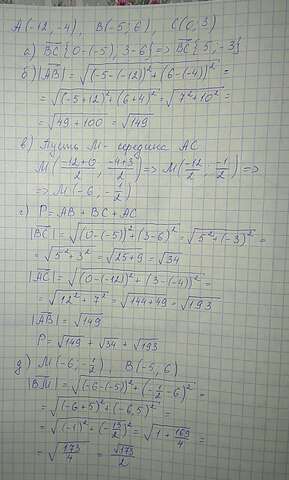 A(-12,-4), B(-5;6), C(0,3)
а) BC{0-(-5), 3-6} => BC{5,-3}
б) |AB| = √((-5-(-12))² + (6-(-4))²) =
= √((-5+12)² + (6+4)²) = √(7²+10²) =
= √(49+100) = √149
в) Пусть M - середина AC
M((-12+0)/2, (-4+3)/2) => M(-12/2, -1/2) =>
=> M(-6, -1/2)
г) P = AB + BC + AC
|BC| = √((0-(-5))² + (3-6)²) = √(5²+(-3)²) =
= √(5²+3²) = √(25+9) = √34
|AC| = √((0-(-12))² + (3-(-4))²) =
= √(12²+7²) = √(144+49) = √193
|AB| = √149
P = √149 + √34 + √193
д) M(-6, -1/2), B(-5, 6)
|BM| = √((-6-(-5))² + (-1/2-6)²) =
= √((-6+5)² + (-6,5)²) =
= √((-1)² + (-13/2)²) = √(1 + 169/4) =
= √(173/4) = √173/2